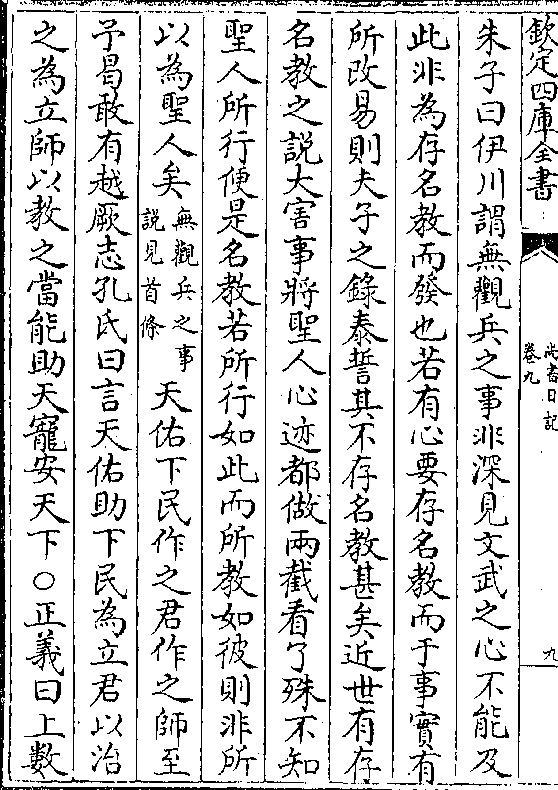 欽定四庫全書
尚書日記
卷九
九
朱子曰伊川謂無觀兵之事非深見文武之心不能及
此非為存名教而發也若有心要存名教而于事實有
所改易則夫子之錄泰誓其不存名教甚矣近世有存
名教之説大害事將聖人心迹都做兩截看了殊不知
聖人所行便是名教若所行如此而所教如彼則非所
以為聖人矣無觀兵之事説見首條天佑下民作之君作之師至
予曷敢有越厥志孔氏曰言天佑助下民為立君以治
之為立師以教之當能助天寵安天下○正義曰上數